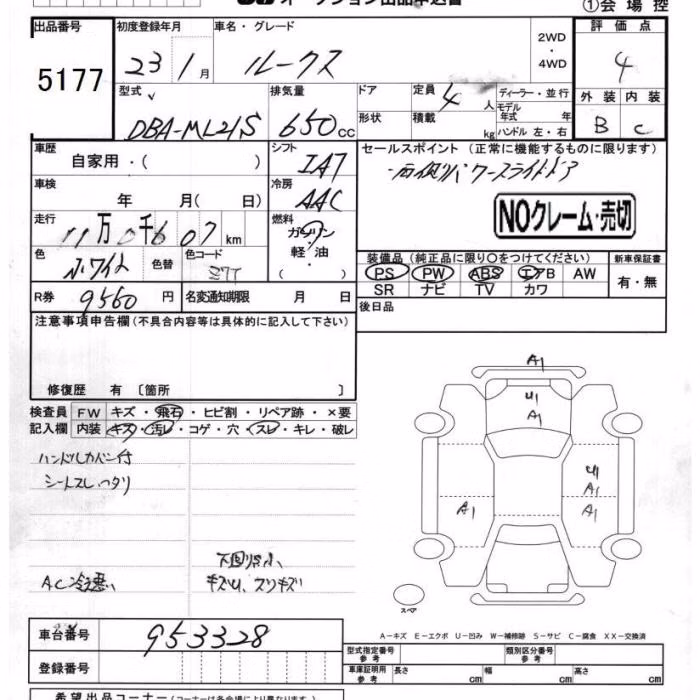 オークション出品申込書
①会場控
出品番号 初度登録年月 車名・グレード 評価点
5177 23 1月 ルークス 2WD・4WD 4
型式 排気量 ドア 定員 ディーラー・並行 外装 内装
DBA-ML21S 650cc 4人 モデル年式 年 B C
形状 積載 kg ハンドル 左・右
車歴 シフト セールスポイント(正常に機能するものに限ります)
自家用・( ) IA7 右側パワースライドドア
車検 冷房
年 月( 日) AAC NOクレーム・売切
走行 燃料
11万0千607km ガソリン・軽油( )
色 色替 色コード 装備品(純正品に限り○をつけてください) 新車保証書
ホワイト PS PW ABS エアB AW 有・無
SR ナビ TV カワ
R券 9560円 名変通知期限 月 日 後日品
注意事項申告欄(不具合内容等は具体的に記入して下さい)
修復歴 有〔箇所 〕
検査員記入欄 FW キズ・飛石・ヒビ割・リペア跡・×要
内装 キズ・汚レ・コゲ・穴・スレ・キレ・破レ
ハンドルカバー付
A1
U1
A1
U1
A1
A1
A1
AC冷え悪い
キズU、スリキズ
スペア
車台番号 953328
A-キズ E-エクボ U-凹み W-補修跡 S-サビ C-腐食 XX-交換済
登録番号
型式指定番号 参考 類別区分番号 参考
車庫証明用 参考 長さ cm 幅 cm 高さ cm
希望出品コーナー(コーナーは各会場により異なります)